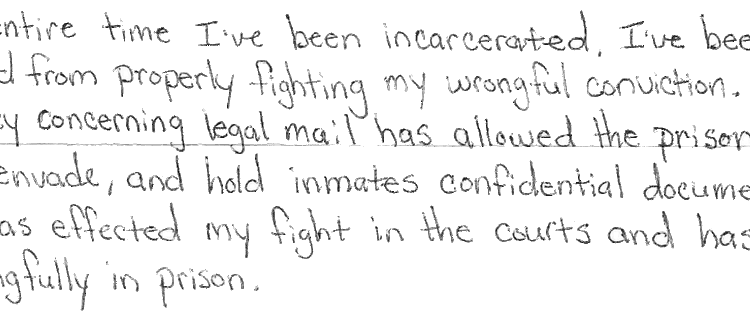 ntire time I've been incarcerated, I've bee
d from properly fighting my wrongful conviction.
cy concerning legal mail has allowed the prison
envade, and hold inmates confidential docume
as effected my fight in the courts and has
ngfully in prison.